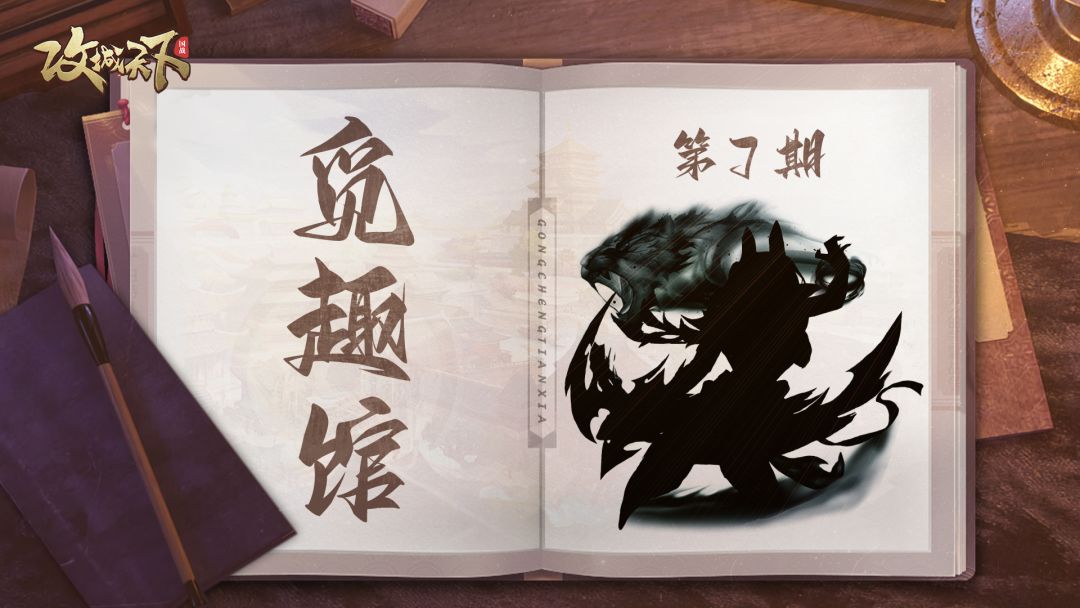 攻城天下
国战
觅趣馆
第7期
GONGCHENGTIANXIA